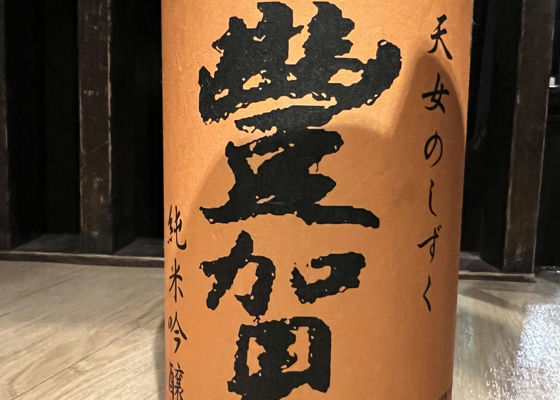 天女のしずく
豊賀
純米吟醸